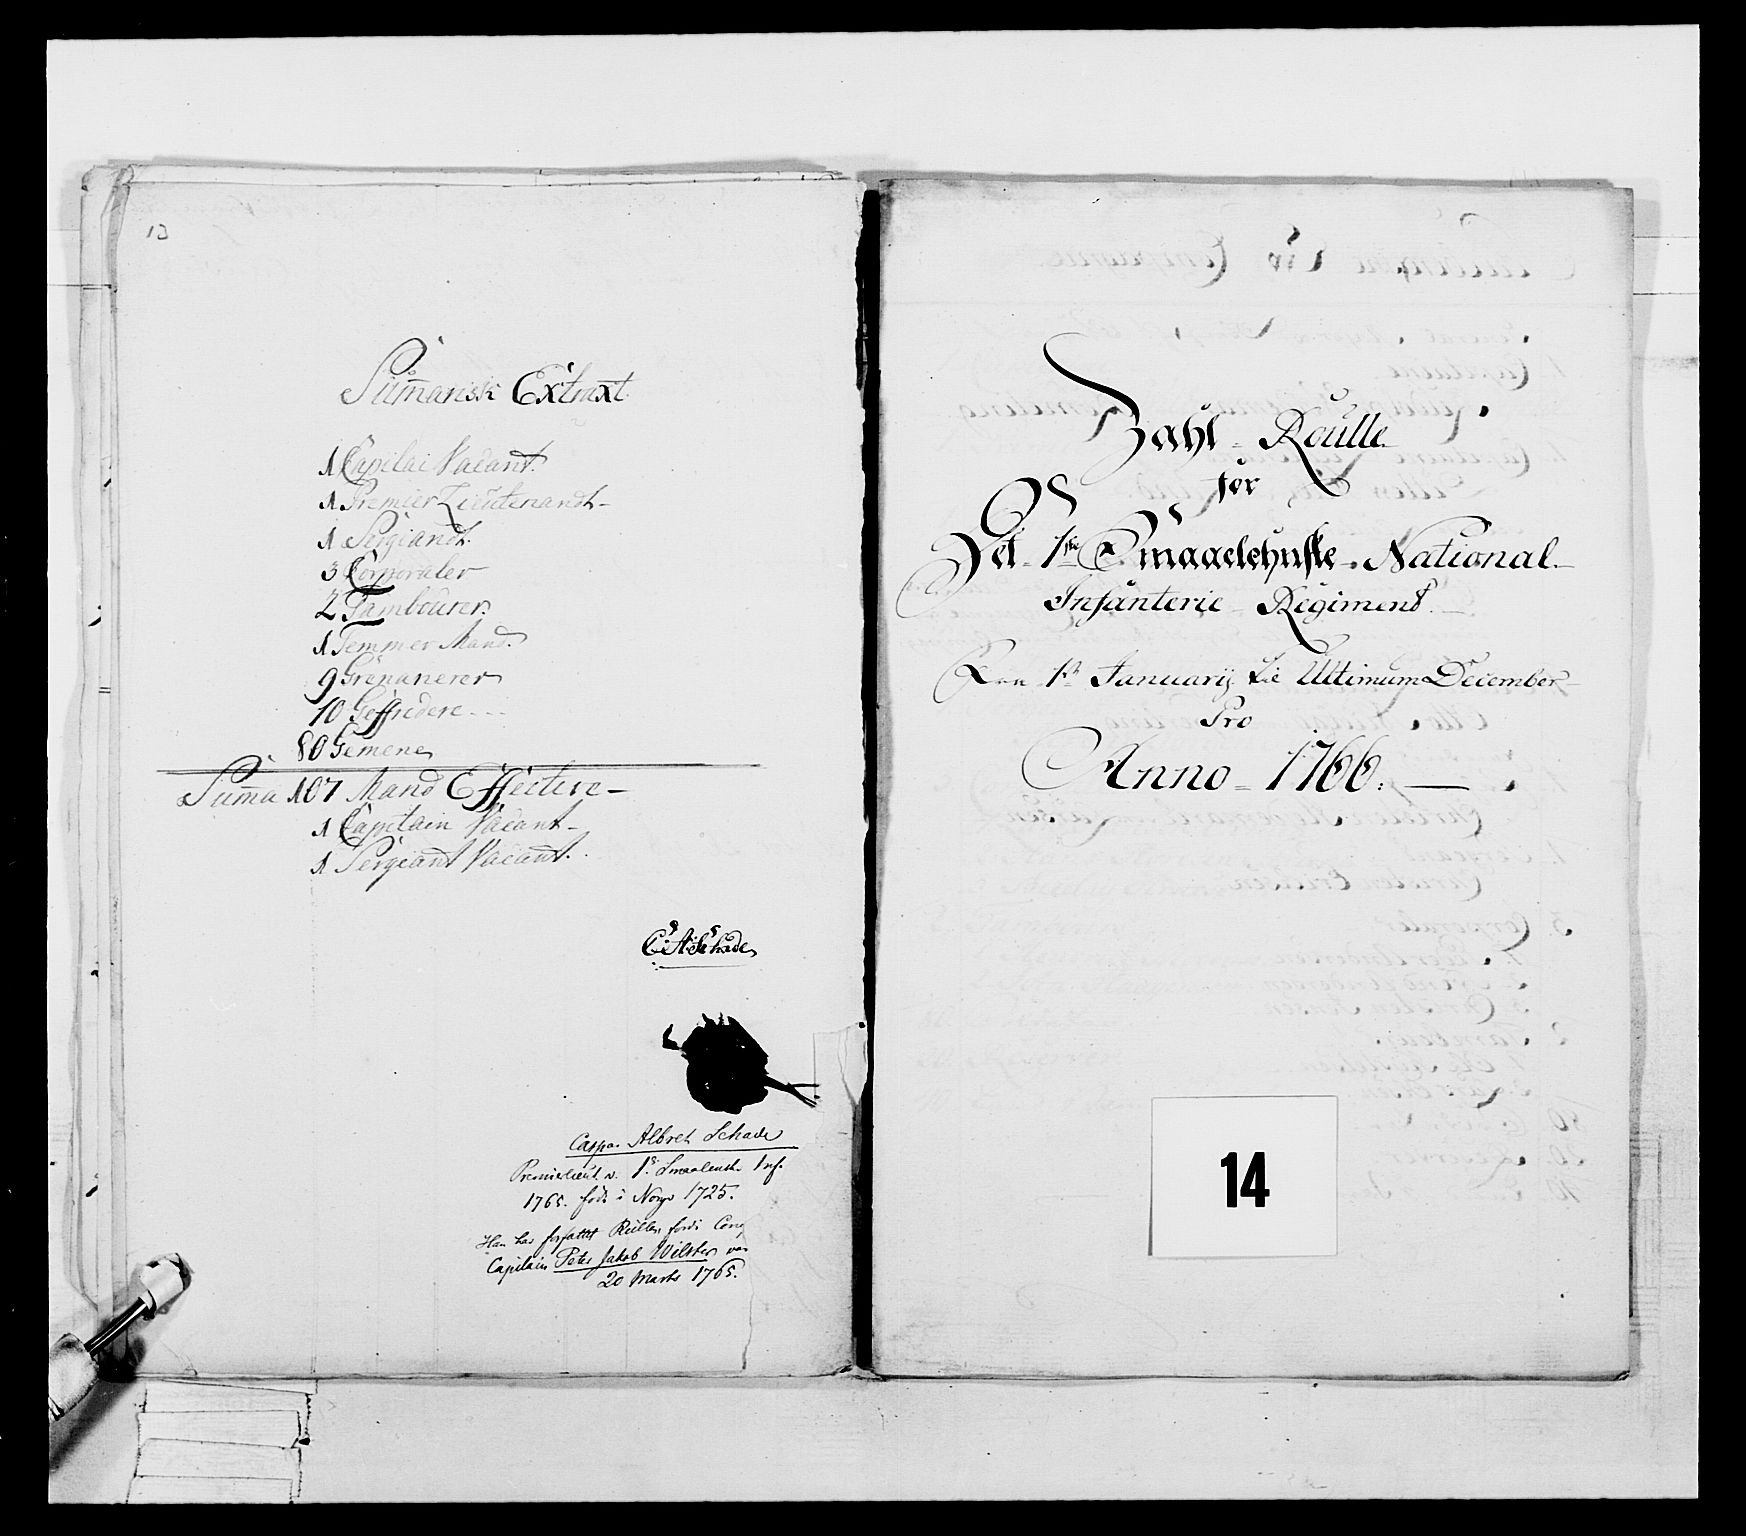 13
Summarisk Extract
1 Capitai Vacant.
1 Premier Lieutenandt
1 Sergiandt.
3 Corporaler
2 Tambourer
1 Temmer Mand.
9 Grenanerer
10 Geffredere
80 Gemene
Summa 107 Mand Effective
1 Capitain Vacant
1 Sergeant Vacant.
C: A: Schade
Caspar Albret Schade
Premierlieut. v. 1s. Smaalensk. Inf.
1765. født i Norge 1725.
Han har forfattet Rullen fordi Comp
Capitain Peter Jakob Wilster var
20 Marts 1765.
Zahl-Roulle
for
Det 1ste Smaalehnske National
Infanterie Regiment.
1te Januarij til Ultimum December
Pro
Anno 1766.
14